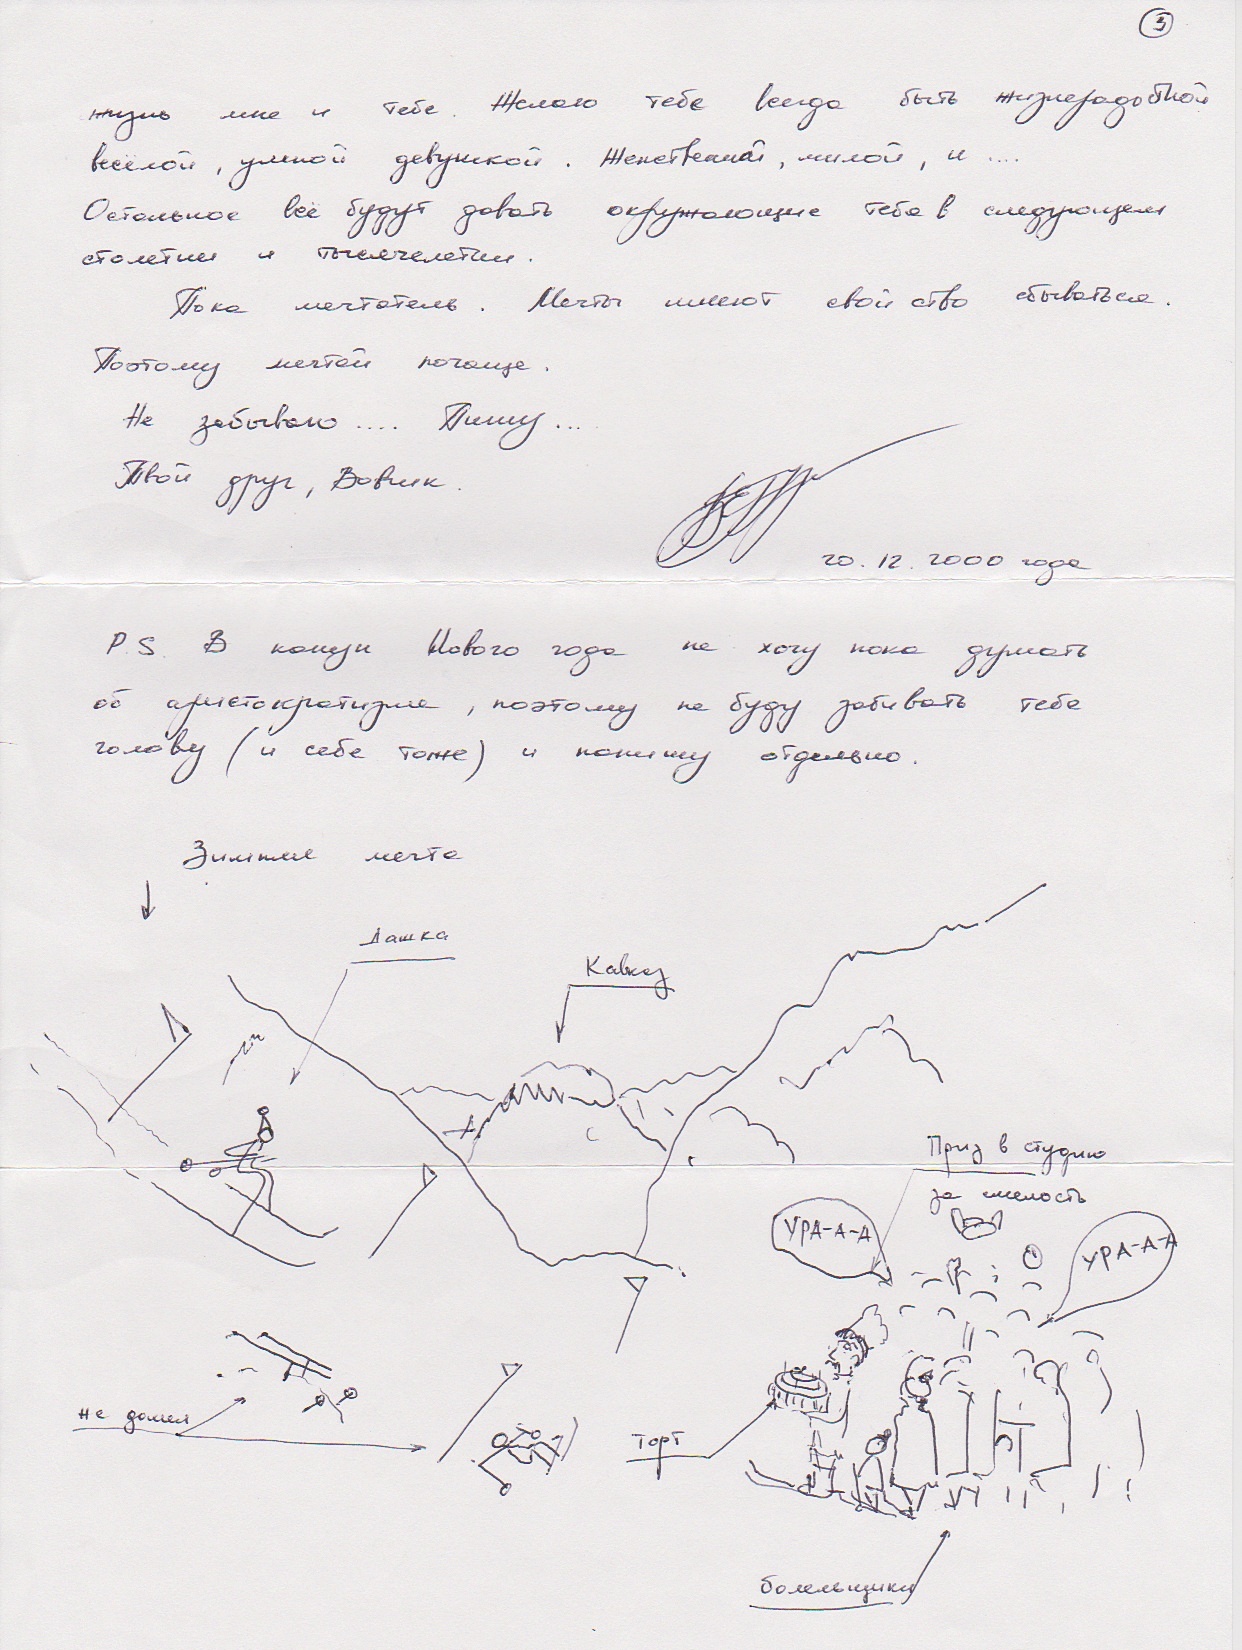 3
жизнь мне и тебе. Желаю тебе всегда быть жизнерадостной
весёлой, умной девушкой. Женственной, милой, и ....
Остальное всё будут давать окружающие тебя в следующем
столетии и тысячелетии.
Пока мечтатель. Мечты имеют свойство сбываться.
Поэтому мечтай почаще.
Не забываю .... Пишу ...
Твой друг, Вовчик.
20.12.2000 года
P.S. В канун Нового года не хочу пока думать
об аристократизме, поэтому не буду забивать тебе
голову (и себе тоже) и напишу отдельно.
Зимние мечта
Дашка
Кавказ
Приз в студию
за смелость
УРА-А-А
УРА-А-А
Не дошли
торт
болельщики